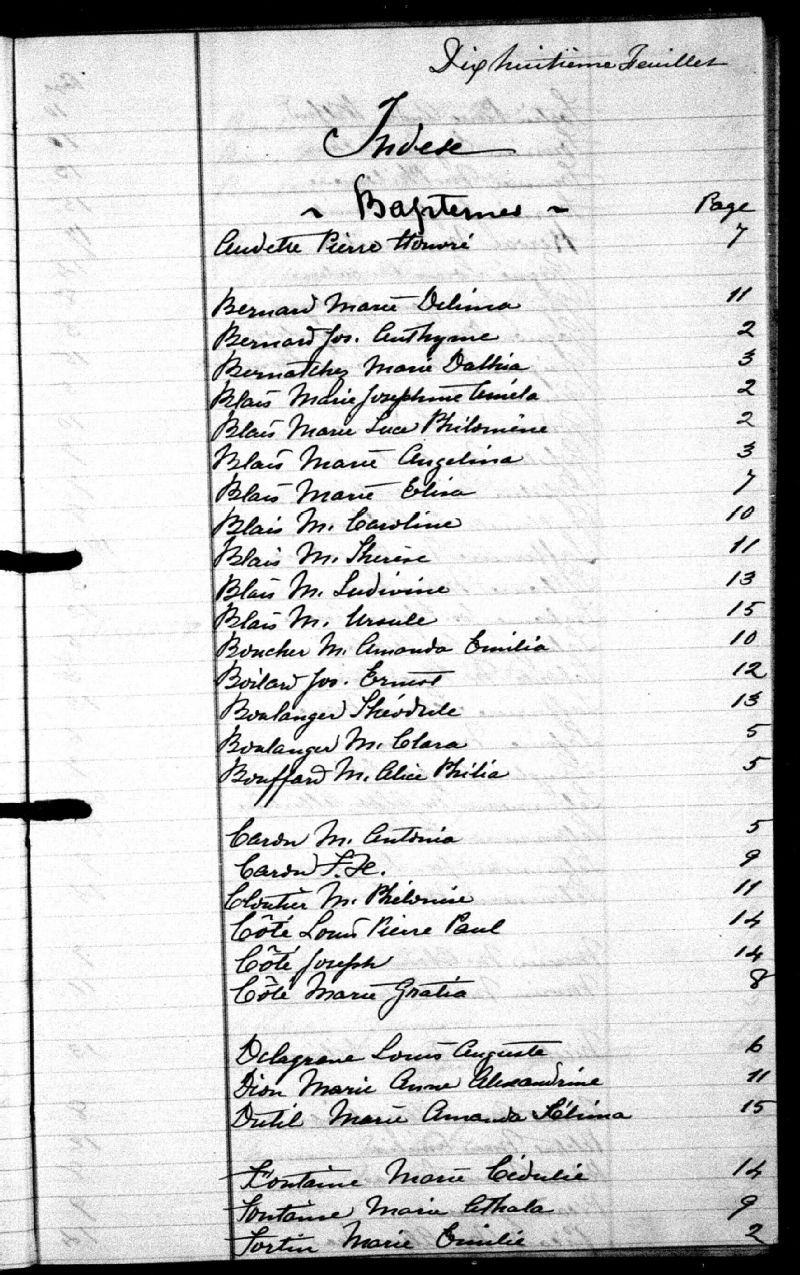 Dix huitième Feuillet
Index
~ Baptemes ~ Page
Audette Pierre Honoré 7
Bernard Marie Delima 11
Bernard Jos. Anthyme 2
Bernatchez Marie Dalhia 3
Blais Marie Josephine 2
Blais Marie Luce Philomène 2
Blais Marie Angelina 3
Blais Marie Elisa 7
Blais M. Caroline 10
Blais M. Therèse 11
Blais M. Ludivine 13
Blais M. Ursule 15
Boucher M. Amanda Emilia 10
Boilard Jos. Ernest 12
Boulanger Théodule 13
Boulanger M. Clara 5
Bouffard M. Alice Philia 5
Caron M. Antonia 5
Caron F. X. 9
Cloutier M. 11
Côté Louis Pierre Paul 14
Côté Joseph 14
Côté Marie Gratia 8
Delagrave Louis Auguste 6
Dion Marie Anne Alexandrine 11
Dutil Marie Amanda 15
Fontaine Marie Cédulie 14
Fontaine Marie Athala 9
Fortin Marie Emilie 2